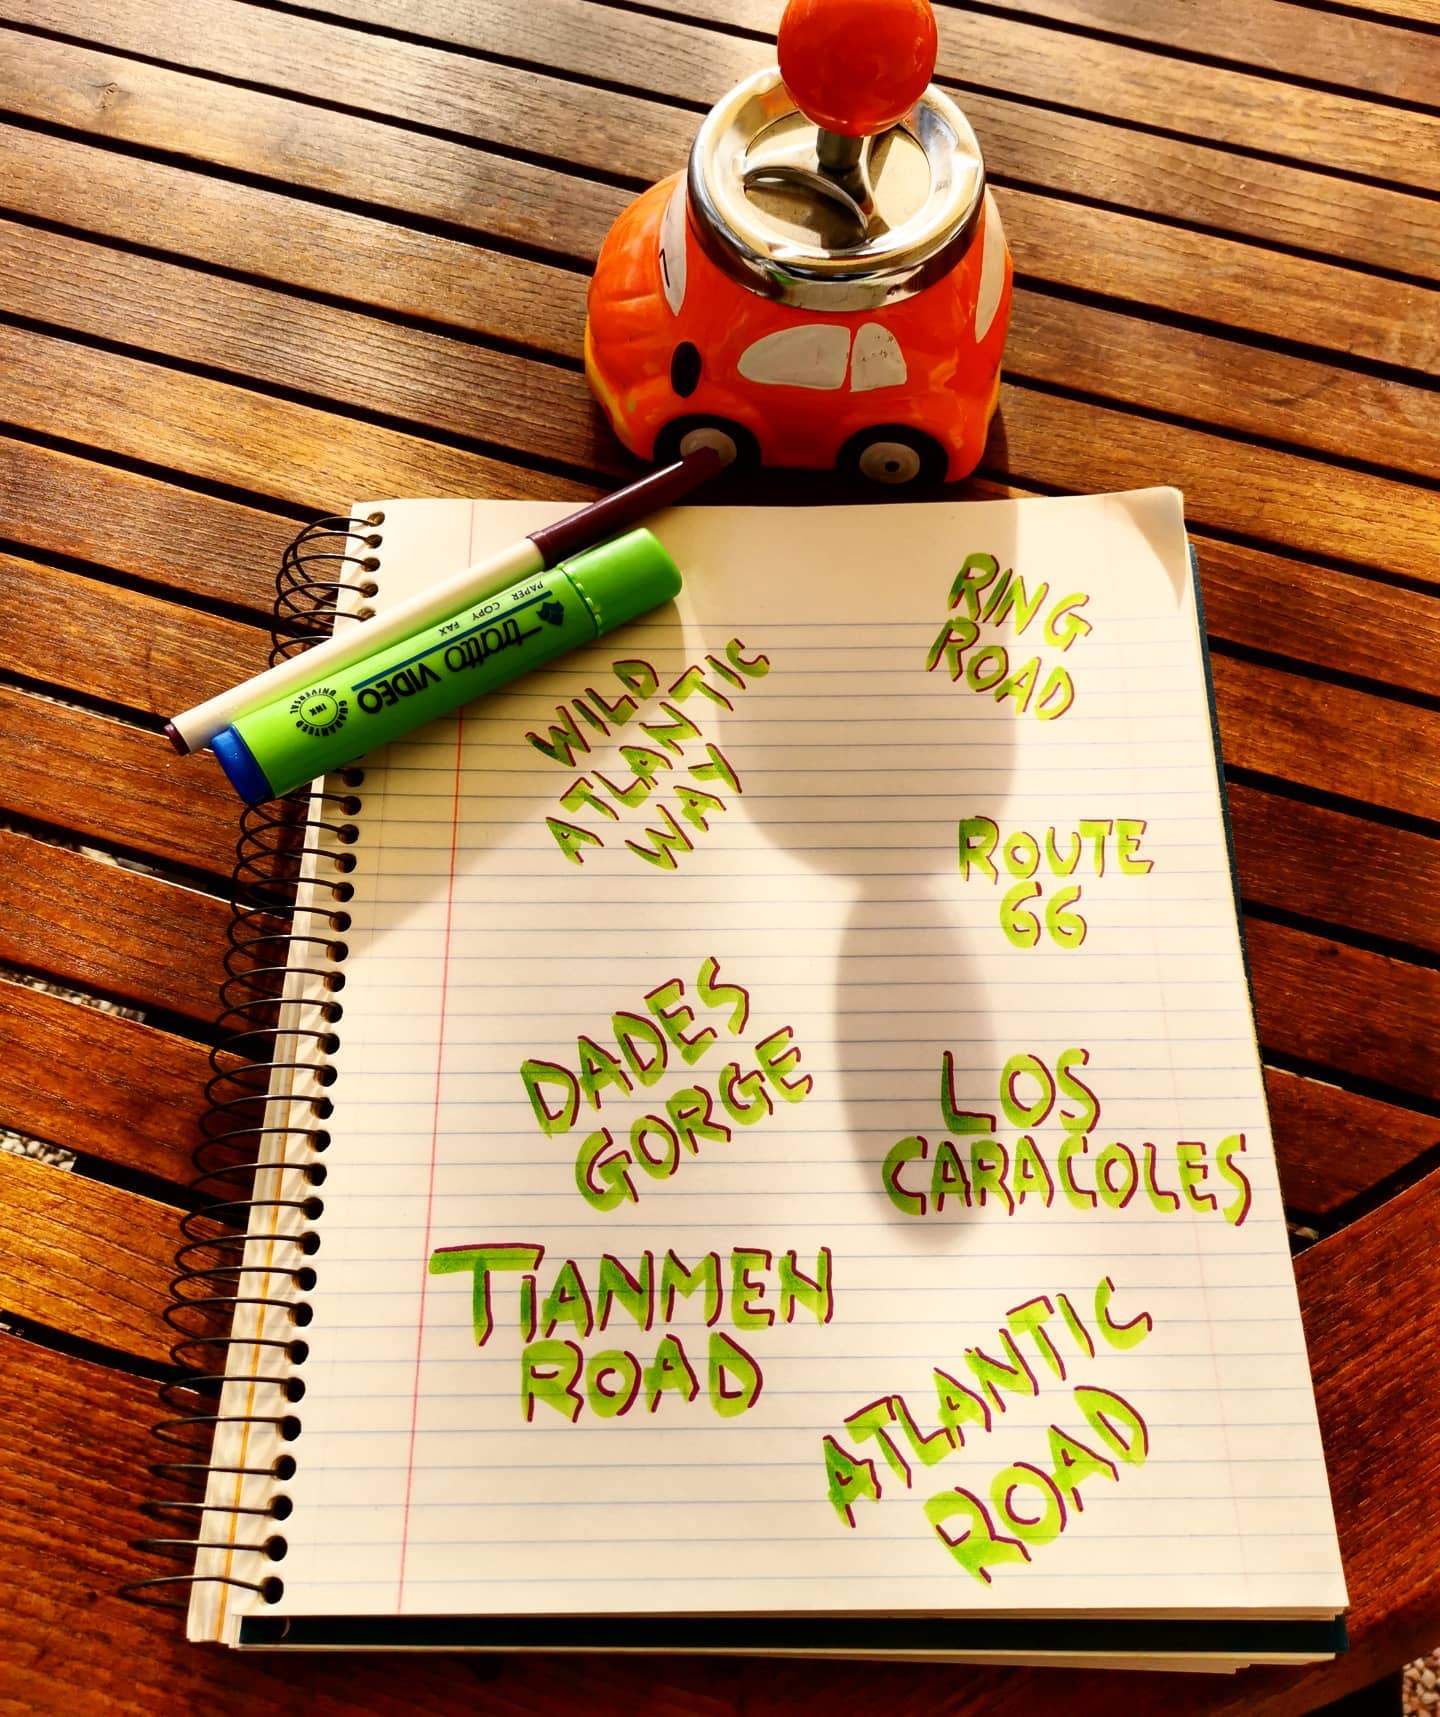 RING
ROAD
WILD
ATLANTIC
WAY
ROUTE
66
DADES
GORGE
LOS
CARACOLES
TIANMEN
ROAD
ATLANTIC
ROAD
tratto VIDEO
PAPER COPY FAX
UNIVERSAL
INK
GUARANTEED